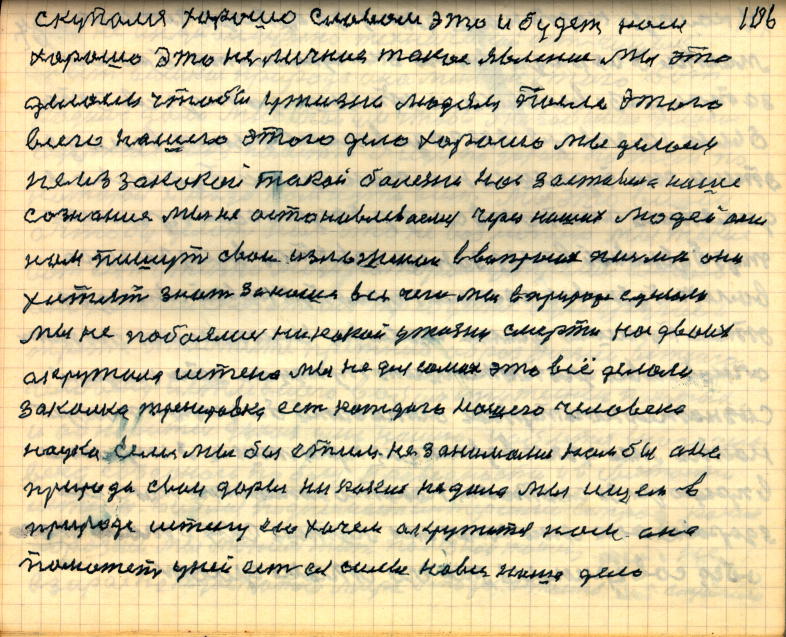 скупался хорошо словом это и будет нам 186
хорошо Это не личние такое явление Мы это
делаем чтобы ужизни людям После этого
всего нашего этого дело хорошо мы делаем
такой болезни нас заставила наше
сознание мы не останавливаем через наших людей они
нам пишут свои письма они
хотят знат за наше все чего мы в природе сделали
мы не побоялися никакой ужизни смерти на двоих
окружила истена мы не для самих это всё делали
закалка тренировка ест каждого нашего человека
наука Если мы бы етим не занимали нам бы она
природа свои дары никакие не дала мы ищем в
природе истину ею хочем окружит она
поможет уней ест силы на все наше дело